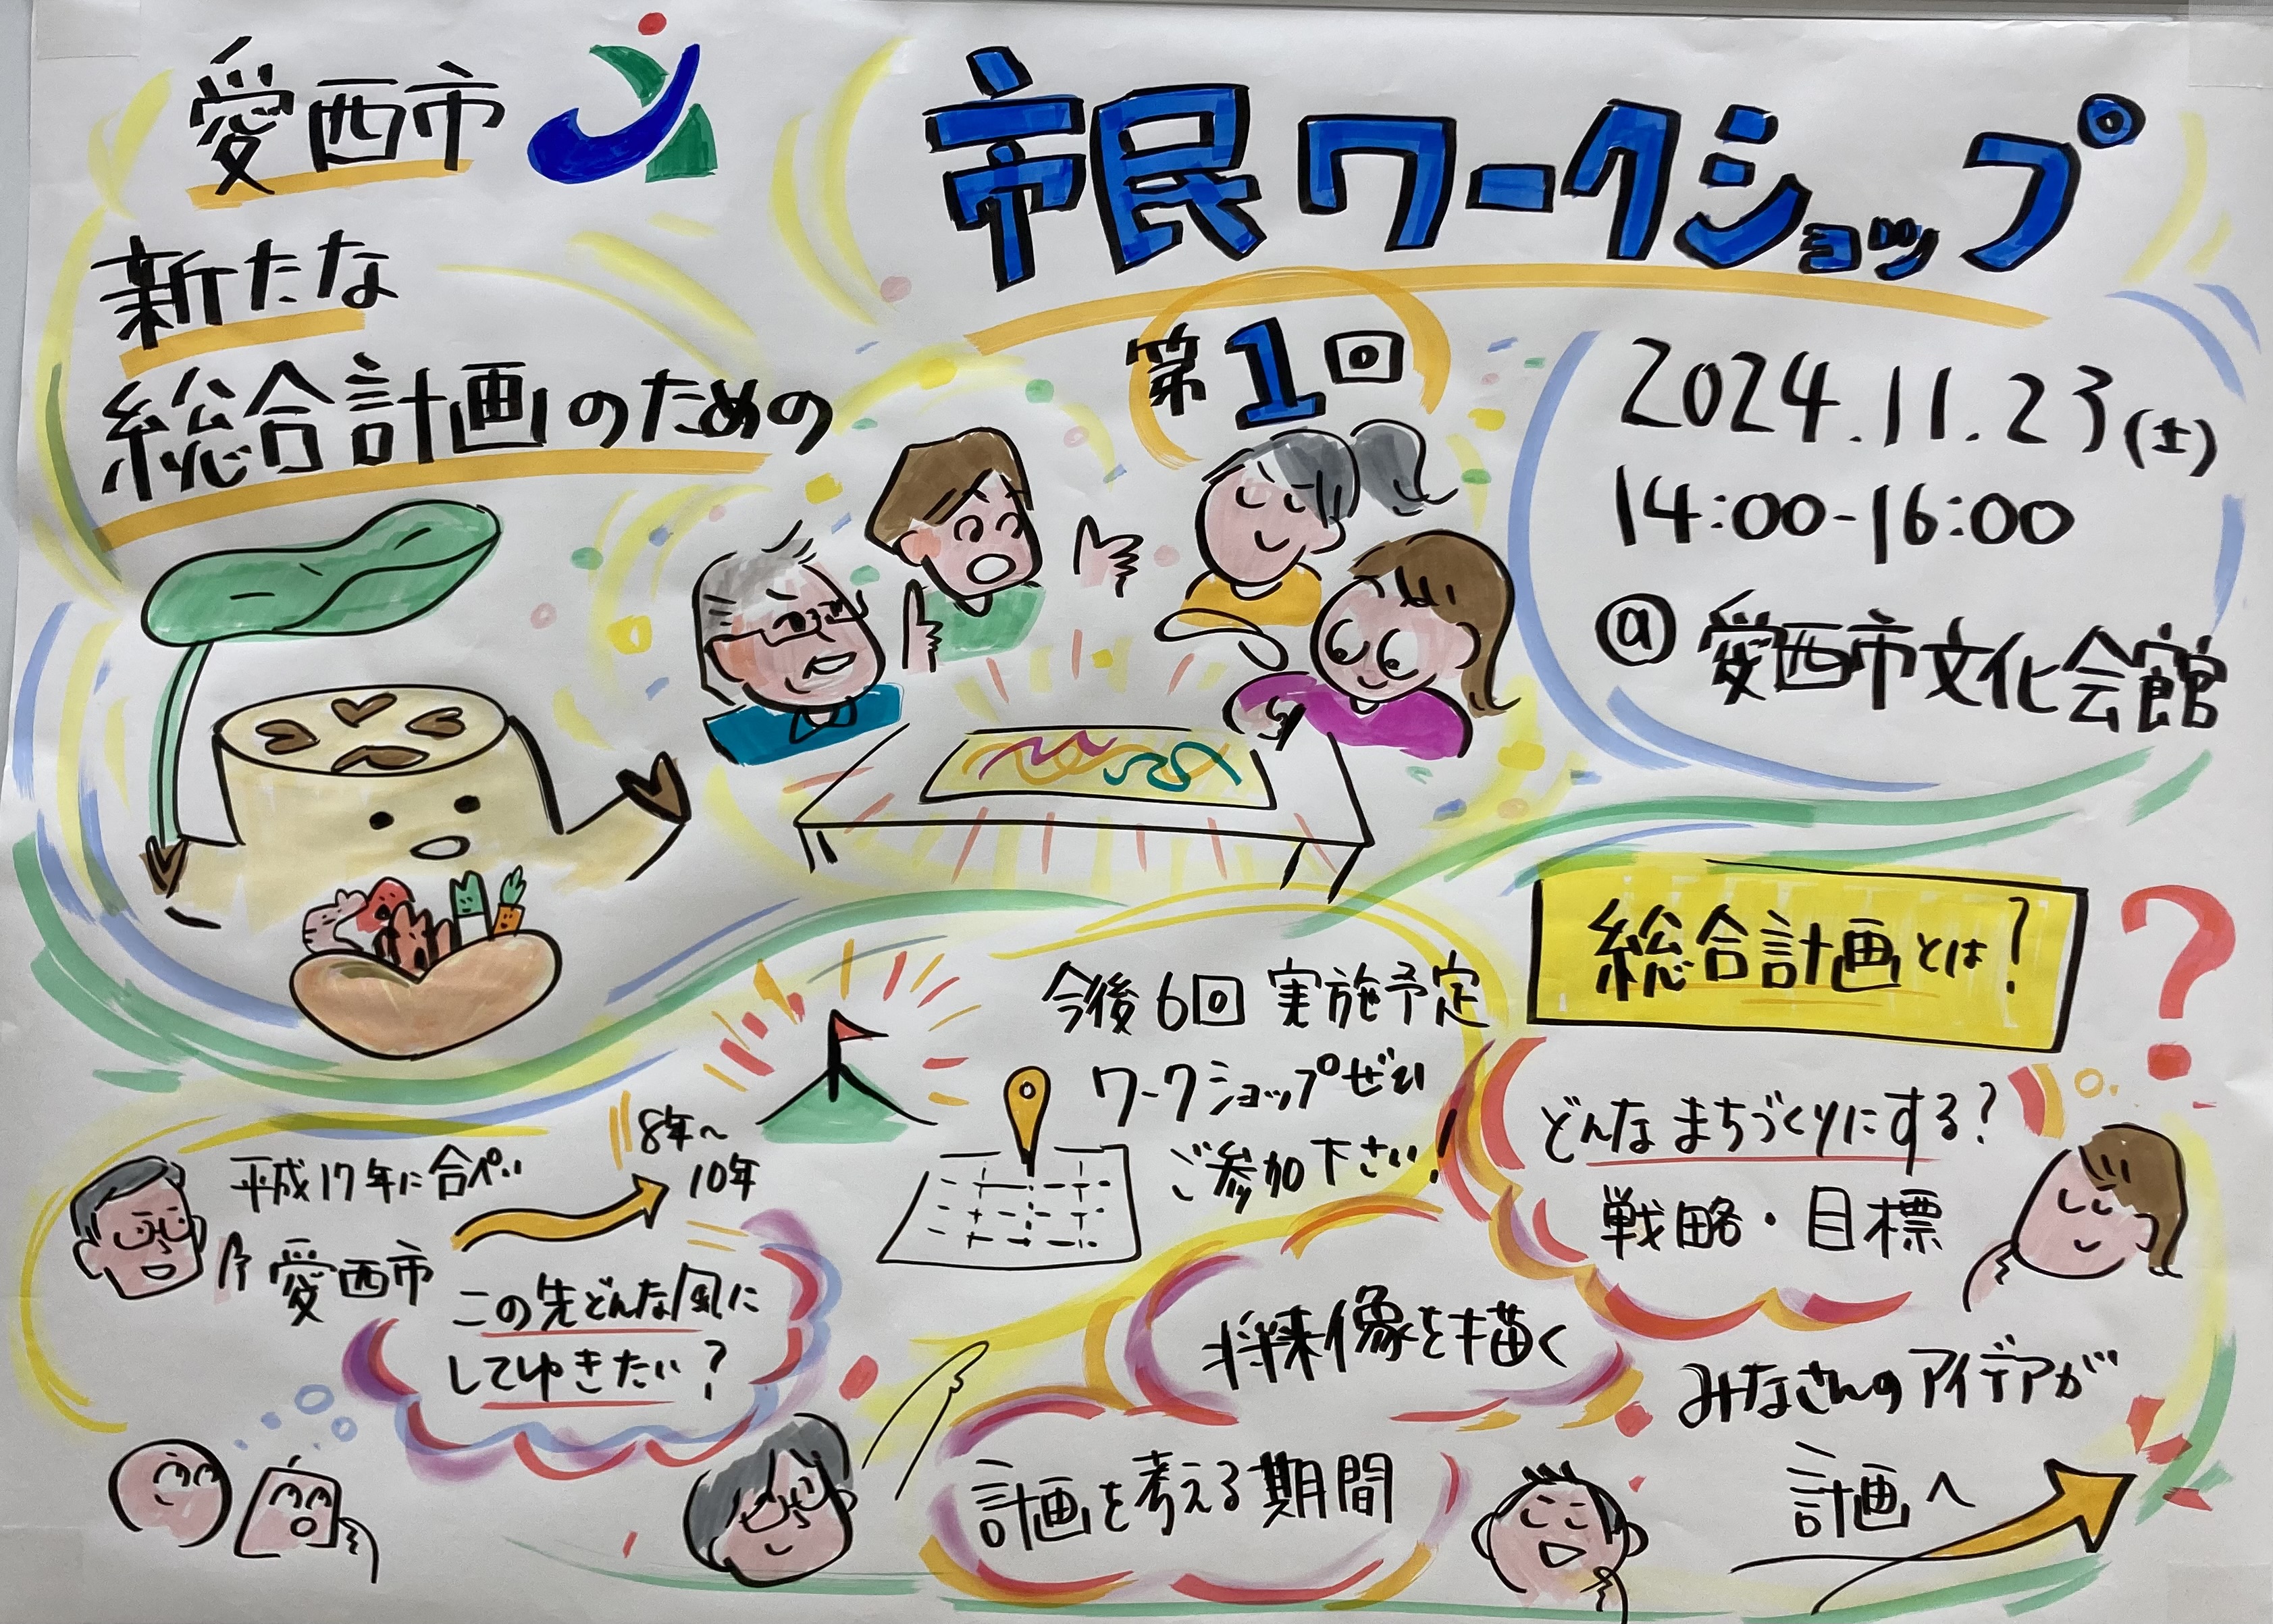 愛西市
新たな
総合計画のための
市民ワークショップ
第1回
2024.11.23(土)
14:00-16:00
@愛西市文化会館
今後6回 実施予定
ワークショップぜひ
ご参加下さい!
総合計画とは?
?
どんなまちづくりにする?
戦略・目標
平成17年に合ペい
愛西市
8年~
10年
この先どんな風に
してゆきたい?
将来像を描く
計画を考える期間
みなさんのアイデアが
計画へ